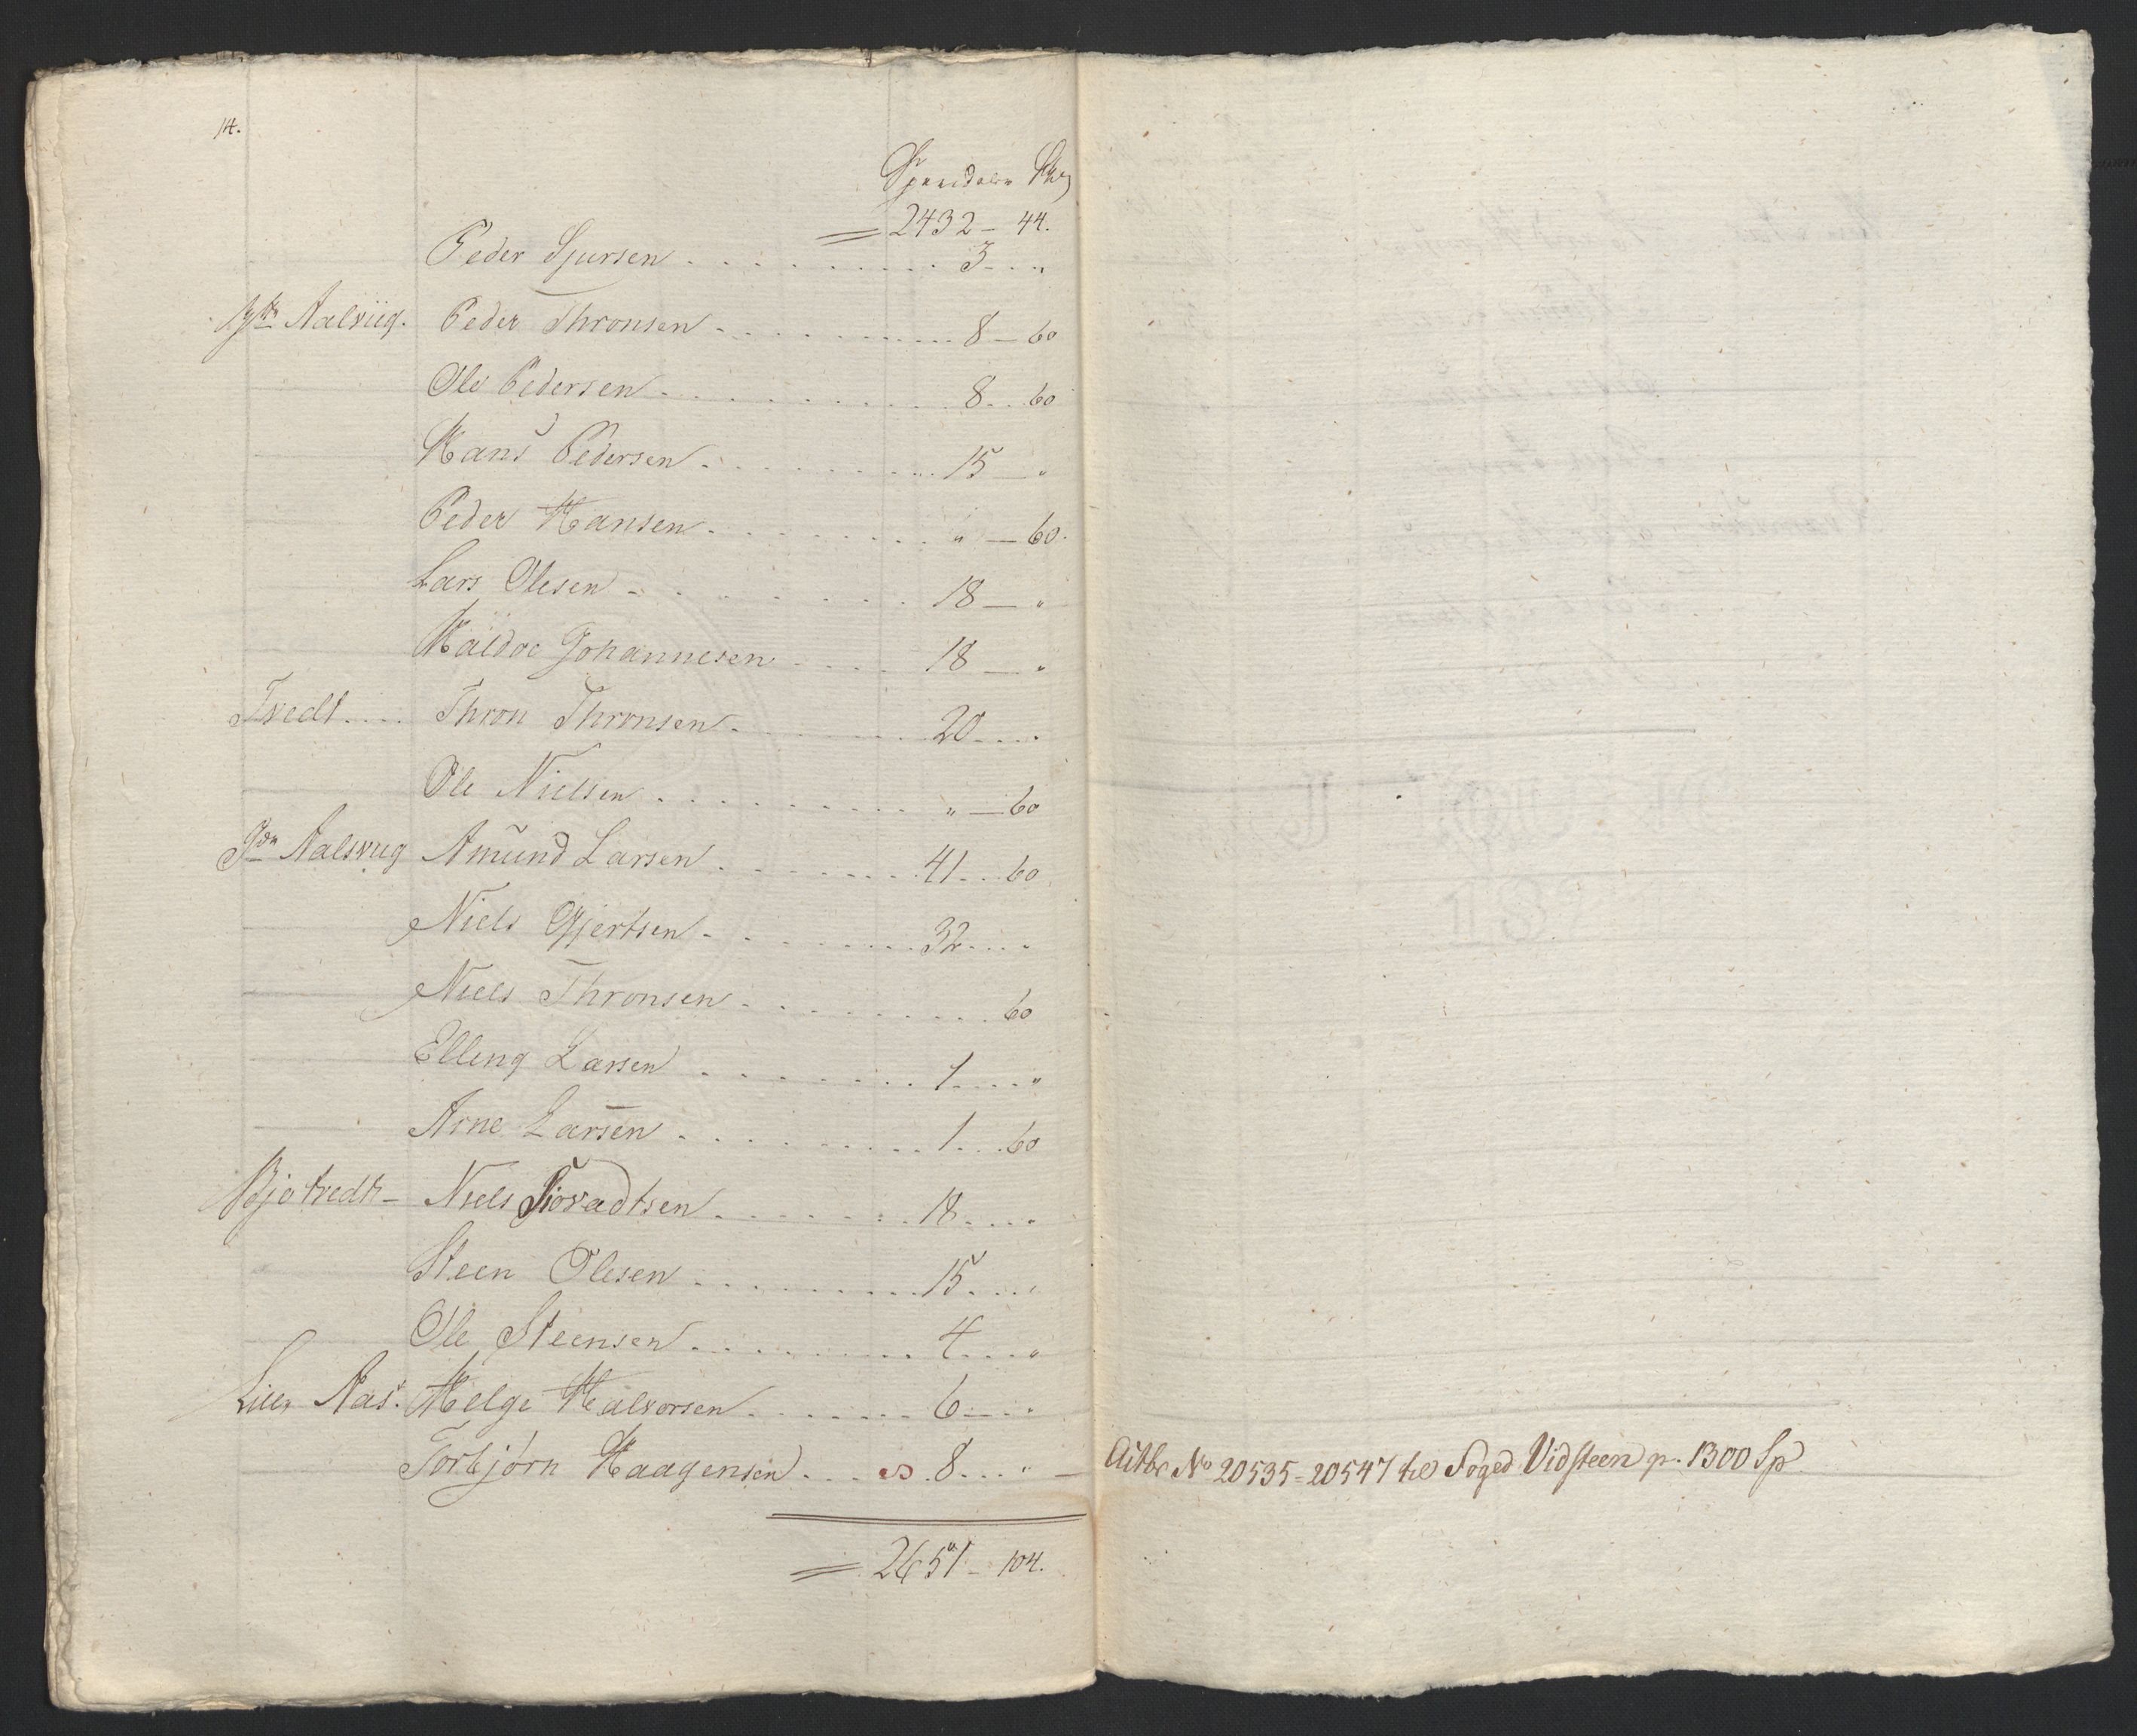 14.
Speciedaler Skg
= 2432 - 44.
Peder Sjursen . . . . . 3 - - "
Ytr Aalviig. Peder Thronsen - . . . . 8 - 60
Ole Pedersen . . . . . 8 . . 60
Hans Pedersen . . . . . 15 - "
Peder Hansen . . . . . " - 60.
Lars Olesen - . . . . . 18 - "
Haldor Johannesen . . . . 18 - "
Tvedt . . . . Thron Thronsen . . . . . 20 . . . .
Ole Nielsen . . . . . " - 60
Idr Aalviig Amund Larsen . . . . . 41 . . . 60
Niels Gjertsen . . . . . 32 . . . .
Niels Thronsen . . . . . 60
Elling Larsen . . . . . 1 . . . . "
Arne Larsen . . . . . 1 . . . 60
Bjotvedt - Niels Siovadtsen . . . . . 18 . . . "
Steen Olesen . . . . . 15 . . . "
Ole Steensen . . . . . 4 . . . "
Lille Aas. Helge Halvorsen . . . . . 6 - - "
Torbjørn Haagensen . . . . 8 . . . " -
= 2651 - 104.
No 20535 = 20547 til Foged Vidsteen p. 1300 Sp